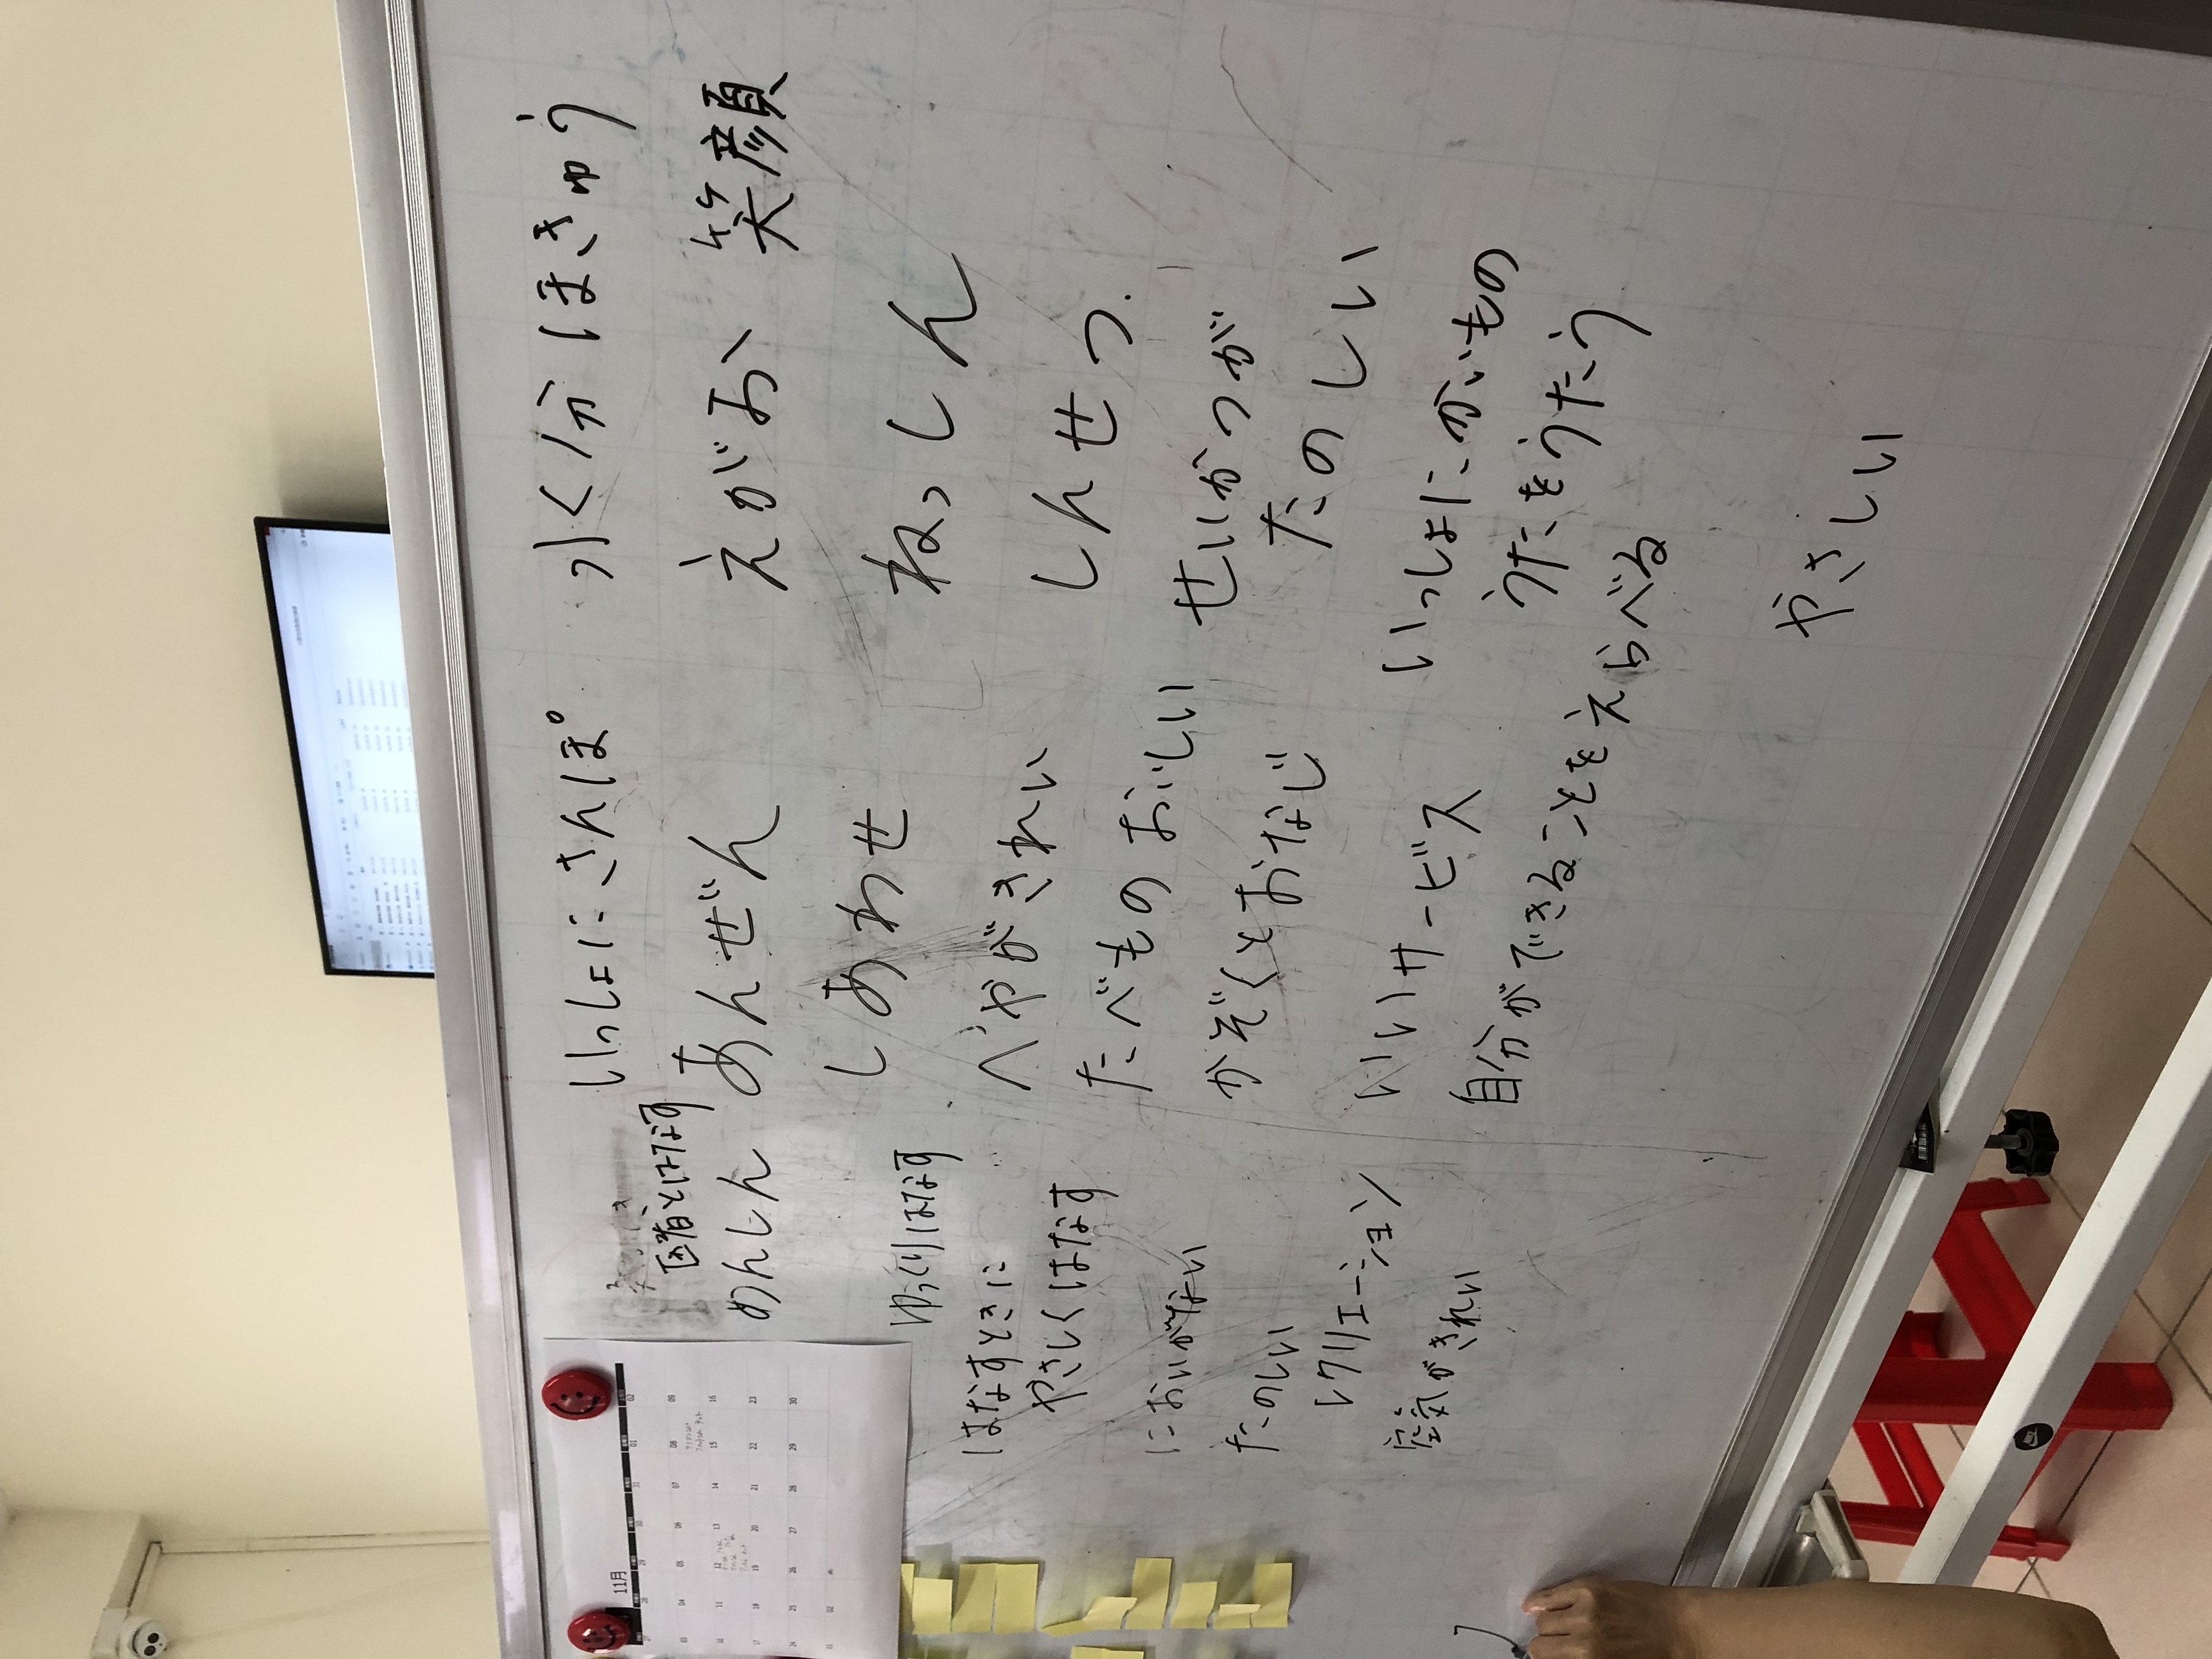 11月
医者とはなす
あんしん
ゆっくりはなす
はなすときに
やさしくはなす
においがない
たのしい
レクリエーション
空気がきれい
いっしょにさんぽ
あんぜん
しあわせ
へやがきれい
たべものおいしい
かぞくとおなじ
いいサービス
自分ができることをえらべる
水分ほきゅう
えがお、笑顔
ねっしん
しんせつ
せいかつが
たのしい
いっしょにかいもの
うたをうたう
やさしい